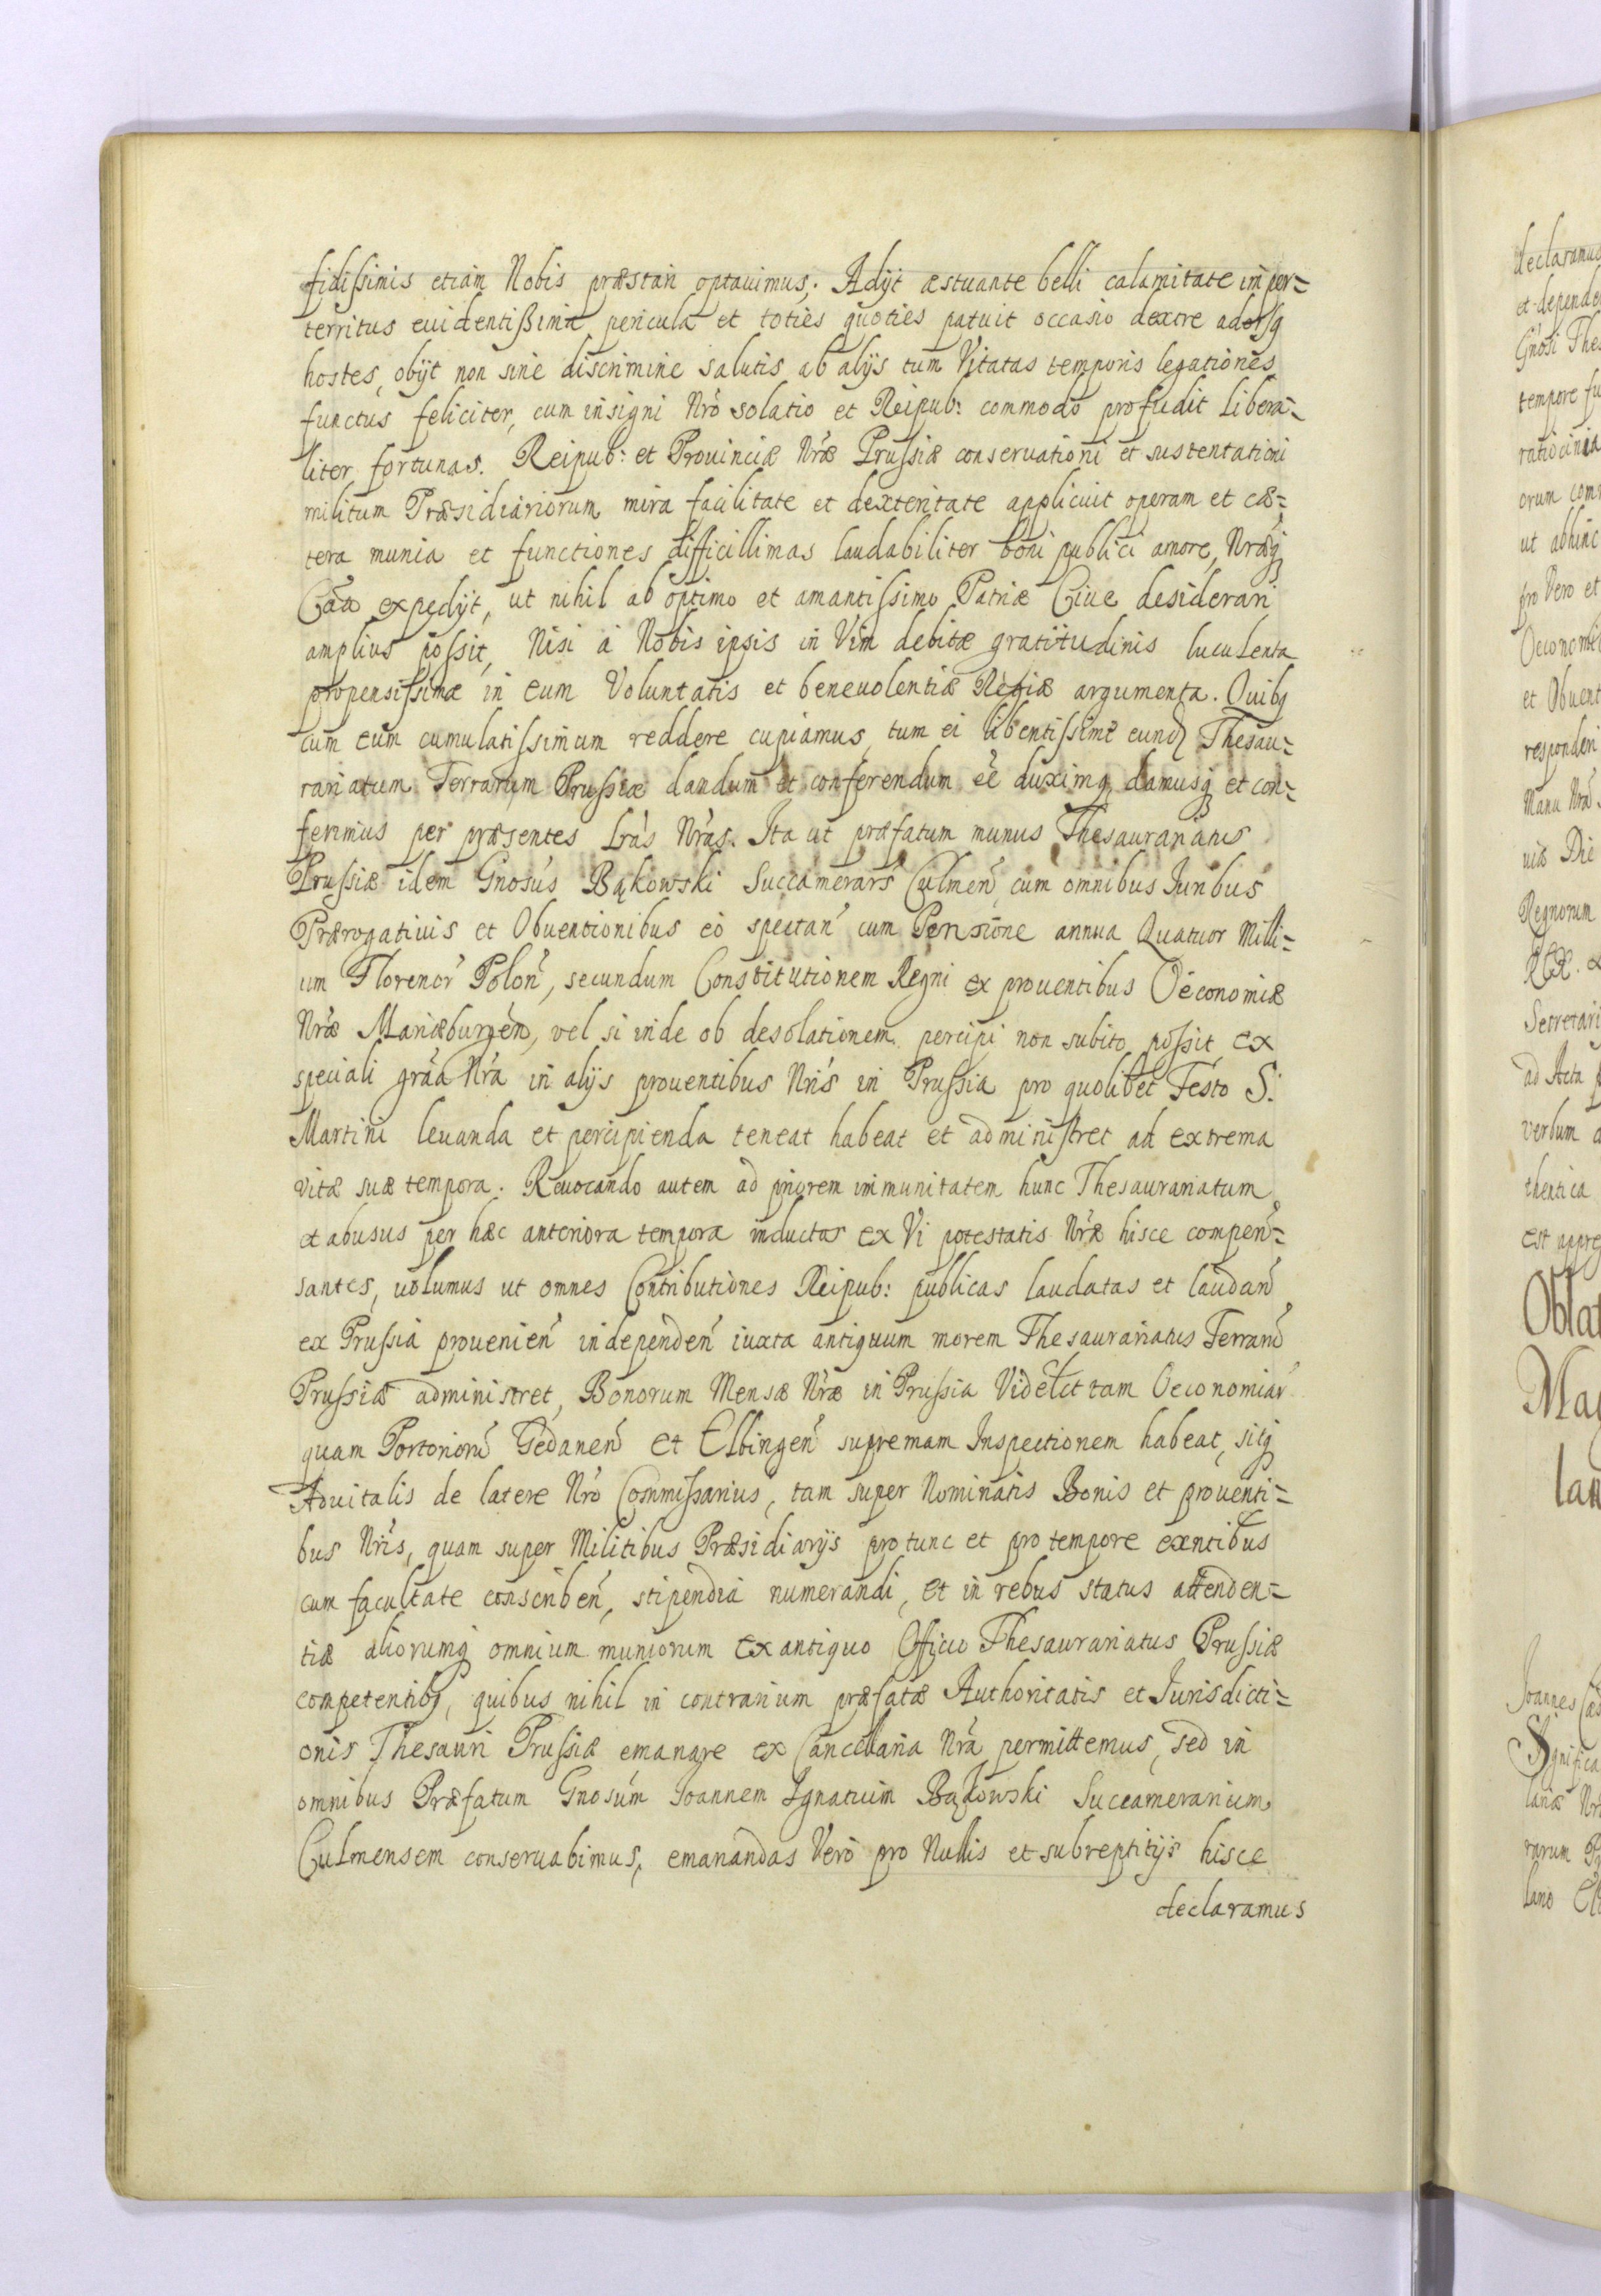 fidissimis etiam Nobis præstari optauimus; Adijt æstuante belli calamitate imper=
territus euidentissima pericula et toties quoties patuit occasio dextre adersq
hostes, obijt non sine discrimine salutis ab alijs tum Vitatas temporis legationes
functus feliciter, cum insigni Nrõ solatio et Reipub: commodo profudit libera=
liter fortunas. Reipub: et Prouinciæ Nræ Prussiæ conseruationi et sustentationi
militum Præsidiariorum mira facilitate et dexteritate applicuit operam et cæ=
tera munia et functiones difficillimas laudabiliter boni publici amore, Nræq
Cãa expedijt, ut nihil ab optimo et amantissimo Patriæ Ciue desiderari
amplius possit, Nisi à Nobis ipsis in Vim debitæ gratitudinis luculenta
propensissimæ in eum Voluntatis et beneuolentiæ Regiæ argumenta. Quibq
cum eum cumulatissimum reddere cupiamus, tum ei libentissimè eund Thesau=
rariatum Terrarum Prussiæ dandum et conferendum eẽ duximq, damusq et con=
ferimus per præsentes Lrãs Nrãs. Ita ut præfatum munus Thesaurariatus
Prussiæ idem Gnosus Bąkowski Succamerars Culmeñ, cum omnibus Iuribus
Prærogatiuis et Obuentionibus eò spectañ cum Pensione annua Quatuor Milli=
um Florenor Poloñ, secundum Constitutionem Regni ex prouentibus Oeconomiæ
Nræ Mariæburgeñ, vel si inde ob desolationem percipi non subito possit, ex
speciali grãa Nrã in alijs prouentibus Nris in Prussia pro quolibet Festo S:
Martini leuanda et percipienda teneat habeat et administret ad extrema
vitæ suæ tempora. Reuocando autem ad priorem immunitatem hunc Thesaurariatum
et abusus per hæc anteriora tempora inductos ex Vi potestatis Nræ hisce compen=
santes, uolumus ut omnes Contributiones Reipub: publicas laudatas et laudañ
ex Prussia prouenieñ independeñ iuxta antiquum morem Thesaurariatus Terrarũ
Prussiæ administret, Bonorum Mensæ Nræ in Prussia Videlct tam Oeconomiar
quam Portoriorũ Gedaneñ et Elbingeñ supremam Inspectionem habeat, sitq
Aduitalis de latere Nrõ Commissarius, tam super Nominatis Bonis et prouenti=
bus Nris, quam super Militibus Præsidiarijs pro tunc et pro tempore exntibus
cum facultate conscribeñ, stipendia numerandi, et in rebus status attenden=
tiæ aliorumq omnium muniorum ex antiquo Officio Thesaurariatus Prussiæ
competentibq, quibus nihil in contrarium præfatæ Authoritatis et Jurisdicti=
onis Thesauri Prussiæ emanare ex Cancellaria Nrã permittemus, sed in
omnibus Præfatum Gnosum Joannem Ignatium Bąkowski Succamerarium
Culmensem conseruabimus, emanandas Verò pro Nullis et subreptitijs hisce
declaramus